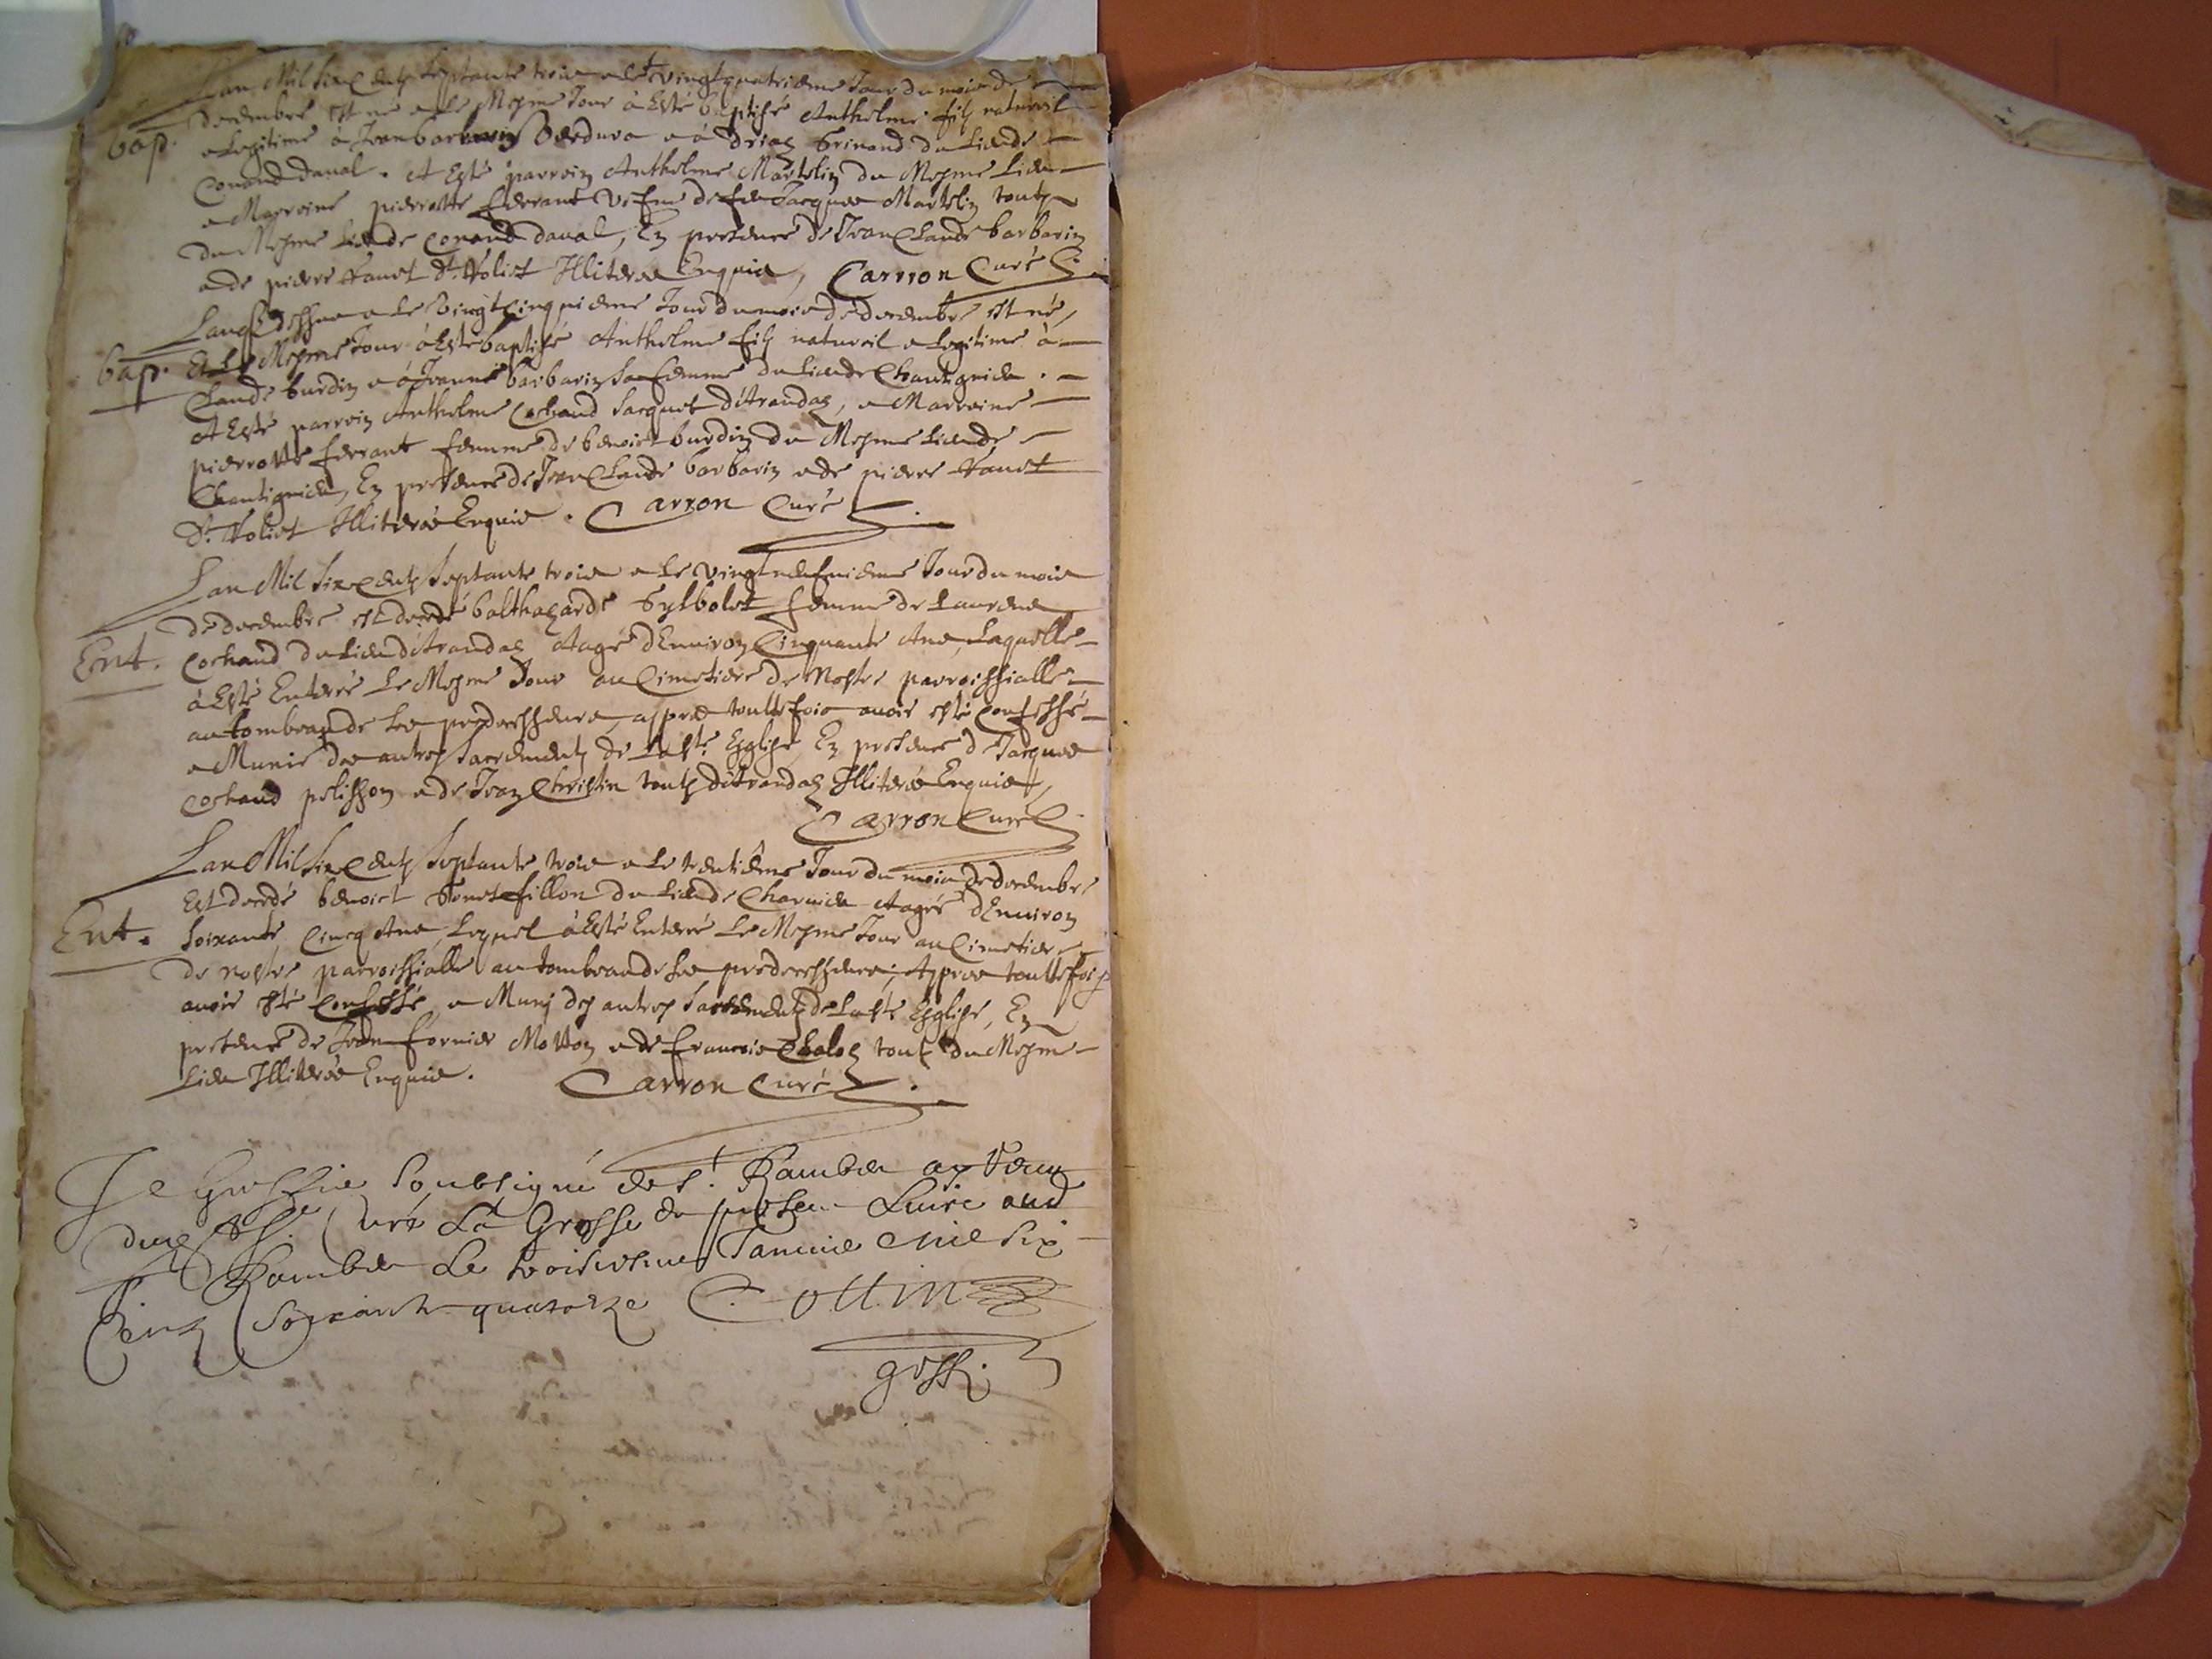 Lan Mil Six Centz septante trois & le vingtquatrieme Jour du mois de
decembre est né & le Mesme Jour à Esté baptisé Anthelme filz naturel
bap. & Legitime à Jean barbarin Verdura & à Brinand du Lieude
Conand daval. A Esté parroin Anthelme Martelin du Mesme Lieu
& Marroine pierrotte ferrant vefue de feu Jacques Martelin toutz
du Mesme Lieude Conand daval, En presence de Jean Claude barbarin
& de pierre dt. Illiteres Enquis, Carron Curé
Lan & Le Vingtcinquieme Jour du mois de decembre est né,
bap. Et Le Mesme Jour à Esté baptisé Anthelme filz naturel & Legitime à
Claude burdin & à Jeanne barbarin sa femme du Lieude Chantignieu.
A Esté parroin Anthelme Cochand Jacquet , & Marroine
pierrotte ferrant femme de benoict burdin du Mesme Lieude
Chantignieu, En presence de Jean Claude barbarin & de pierre
dt. Illiteres Enquis. Carron Curé
Lan Mil Six Centz Septante trois & le vingtneufuieme Jour du mois
de decembre est decedé balthazarde femme de Laurens
Ent. Cochand du Lieu Aagé dEnviron Cinquante Ans, Laquelle
à Esté Enterré Le Mesme Jour au Cimetiere de Nostre parroissialle
au tombeaude ses predecesseurs, appres touttefois avoir esté Confessé
& Munie des autres sacrementz de La Ste. Esglise, En presence de Jacques
Cochand pelisson & de Jean Christin toutz Illiteres Enquis,
Carron Curé
Lan Mil Six Centz Septante trois & le trentieme Jour du mois de decembre
Est decedé benoict fillon du Lieude Aagé dEnviron
Ent. Soixante Cincq Ans, Lequel à Esté Enterré Le Mesme Jour au Cimetiere
de nostre parroissialle au tombeaude ses predecesseurs, Appres touttefois
avoir esté Confessé, & Muni des autres Sacrementz de La Ste. Esglise, En
presence de Jean fornier Motton & de francois toutz du Mesme
Lieu Illiteres Enquis. Carron Curé
Je Greffier Soubsigné de St. Rambert ay Receu
dud Sr. Curé La Grosse du present Livre aud
St Rambert Le troisiesme Janvier Mil Six
Centz Soixante quatorze Cottin
greff.